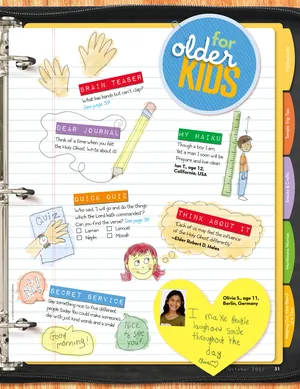 for
older
KIDS
BRAIN TEASER
What has hands but can't clap?
See page 39
DEAR JOURNAL
Think of a time when you felt
the Holy Ghost. Write about it!
MY HAIKU
Though a boy I am
Yet a man I soon will be
Prepare and live clean.
Ian T., age 12,
California, USA
QUICK QUIZ
Who said, "I will go and do the things
which the Lord hath commanded"?
Can you find the verse? See page 39
Laman
Lemuel
Nephi
Moroni
Quiz
THINK ABOUT IT
"Each of us may feel the influence
of the Holy Ghost differently."
—Elder Robert D. Hales
SECRET SERVICE
Say something nice to five different
people today. You could make someone's
day with just kind words and a smile!
Good
morning!
Nice
to see
you!
Olivia S., age 11,
Berlin, Germany
I make people
laugh and smile
throughout the
day
October 2017
31